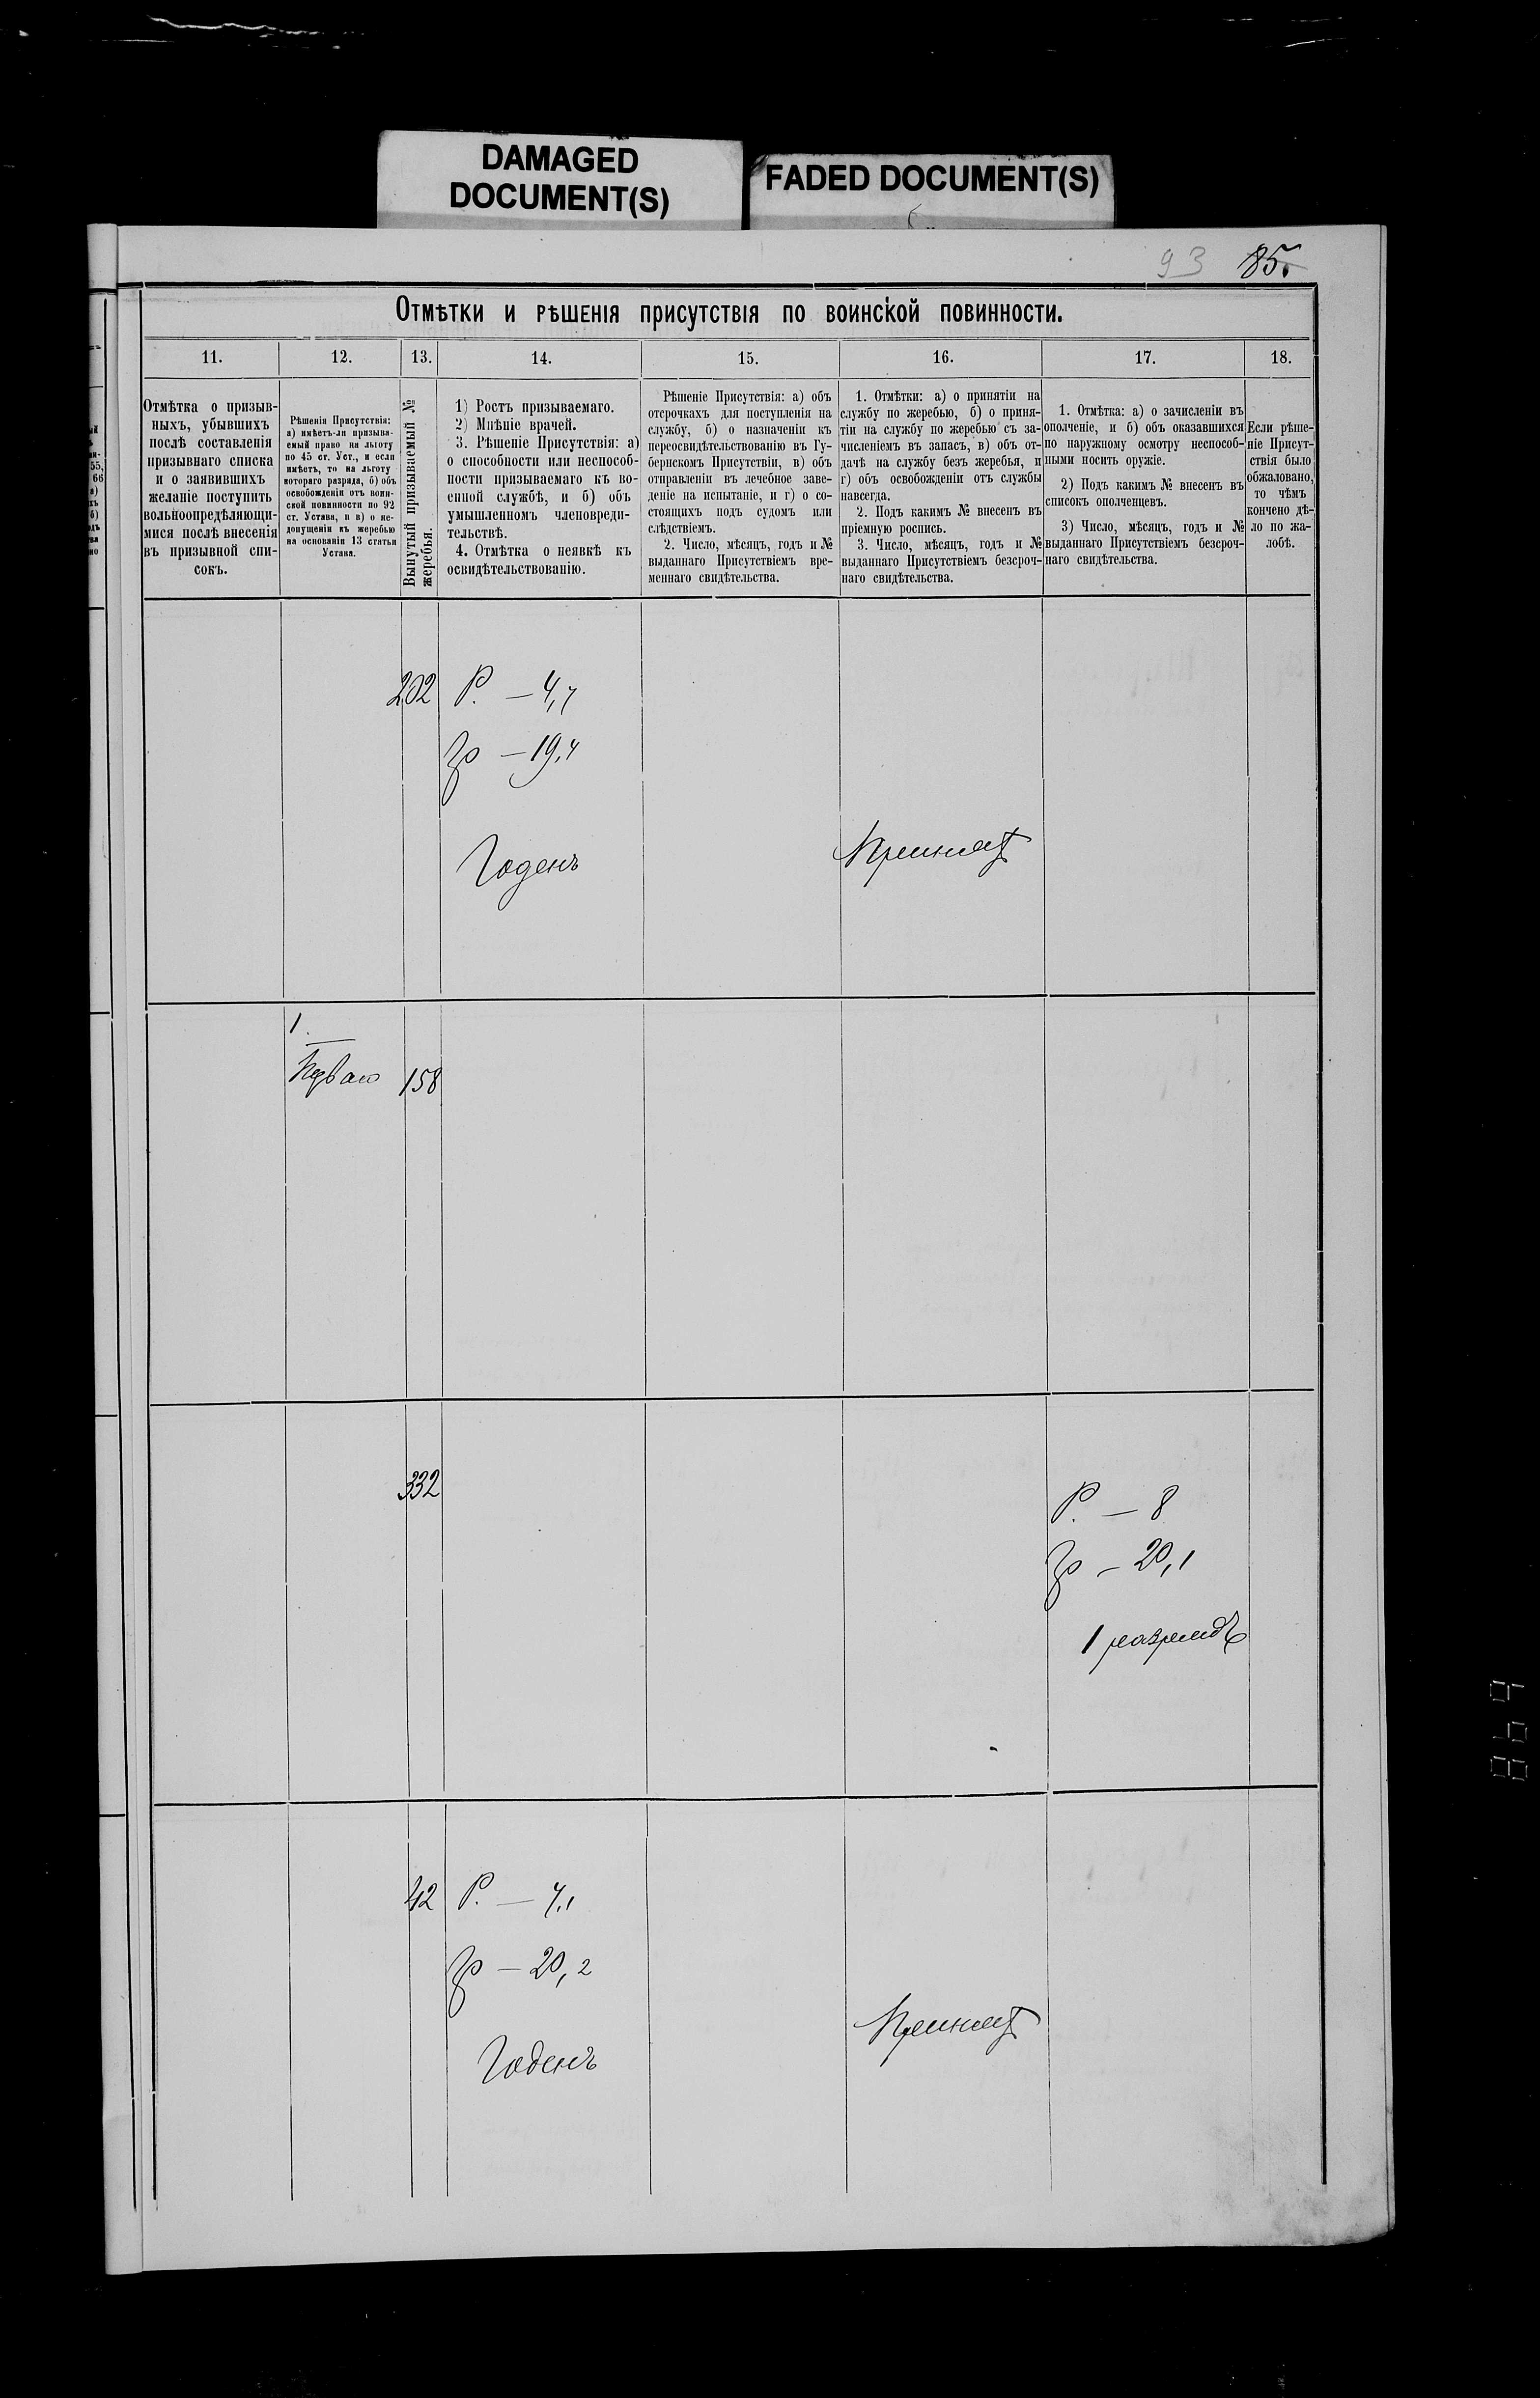 DAMAGED
DOCUMENT(S)
FADED DOCUMENT(S)
93 85.
Отмѣтки и рѣшенія присутствія по воинской повинности.
11. 12. 13. 14. 15. 16. 17. 18.
Отмѣтка о призыв-
ныхъ, убывшихъ
послѣ составленія
призывнаго списка
и о заявившихъ
желаніе поступить
вольноопредѣляющи-
мися послѣ внесенія
въ призывной спи-
сокъ.
Рѣшенія Присутствія:
а) имѣетъ-ли призыва-
емый право на льготу
по 45 ст. Уст., и если
имѣетъ, то на льготу
котораго разряда, б) объ
освобожденіи отъ воин-
ской повинности по 92
ст. Устава, и в) о не-
допущеніи къ жеребью
на основаніи 13 статьи
Устава.
Вынутый призываемый №
жеребья.
1) Ростъ призываемаго.
2) Мнѣніе врачей.
3. Рѣшеніе Присутствія: а)
о способности или неспособ-
ности призываемаго къ во-
енной службѣ, и б) объ
умышленномъ членовреди-
тельствѣ.
4. Отмѣтка о неявкѣ къ
освидѣтельствованію.
Рѣшеніе Присутствія: а) объ
отсрочкахъ для поступленія на
службу, б) о назначеніи къ
переосвидѣтельствованію въ Гу-
бернскомъ Присутствіи, в) объ
отправленіи въ лечебное заве-
деніе на испытаніе, и г) о со-
стоящихъ подъ судомъ или
слѣдствіемъ.
2. Число, мѣсяцъ, годъ и №
выданнаго Присутствіемъ вре-
меннаго свидѣтельства.
1. Отмѣтки: а) о принятіи на
службу по жеребью, б) о приня-
тіи на службу по жеребью съ за-
численіемъ въ запасъ, в) объ от-
дачѣ на службу безъ жеребья, и
г) объ освобожденіи отъ службы
навсегда.
2. Подъ какимъ № внесенъ въ
пріемную роспись.
3. Число, мѣсяцъ, годъ и №
выданнаго Присутствіемъ безсроч-
наго свидѣтельства.
1. Отмѣтка: а) о зачисленіи въ
ополченіе, и б) объ оказавшихся
по наружному осмотру неспособ-
ными носить оружіе.
2) Подъ какимъ № внесенъ въ
списокъ ополченцевъ.
3) Число, мѣсяцъ, годъ и №
выданнаго Присутствіемъ безсроч-
наго свидѣтельства.
Если рѣше-
ніе Присут-
ствія было
обжаловано,
то чѣмъ
кончено дѣ-
ло по жа-
лобѣ.
202 Р. — 4,7
гр — 19,4
Годенъ
Принятъ
1.
158
332
Р. — 8
гр — 20,1
1 разрядъ
42 Р. — 4,1
гр — 20,2
Годенъ
Принятъ